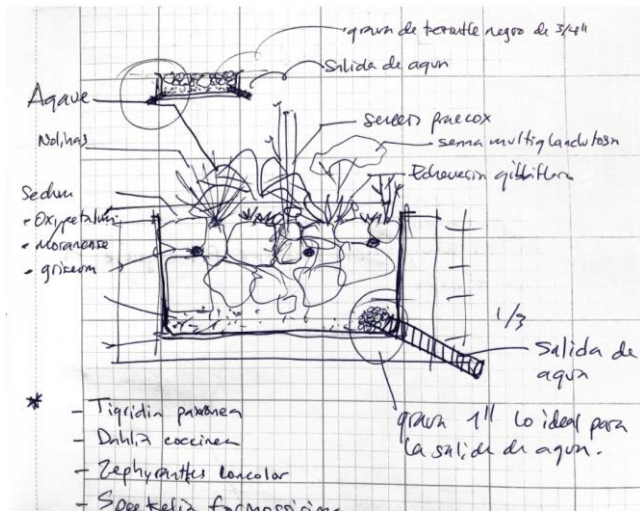 grava de tezontle negro de 3/4"
Salida de agua
Agave
Nolinas
senecio praecox
senna multiglandulosa
Echeveria gibbiflora
Sedum
- Oxypetalum
- moranense
- griseum
1/3
Salida de
agua
grava 1" lo ideal para
la salida de agua.
*
- Tigridia pavonea
- Dahlia coccinea
- Zephyranthes concolor
- Sprekelia formosissima